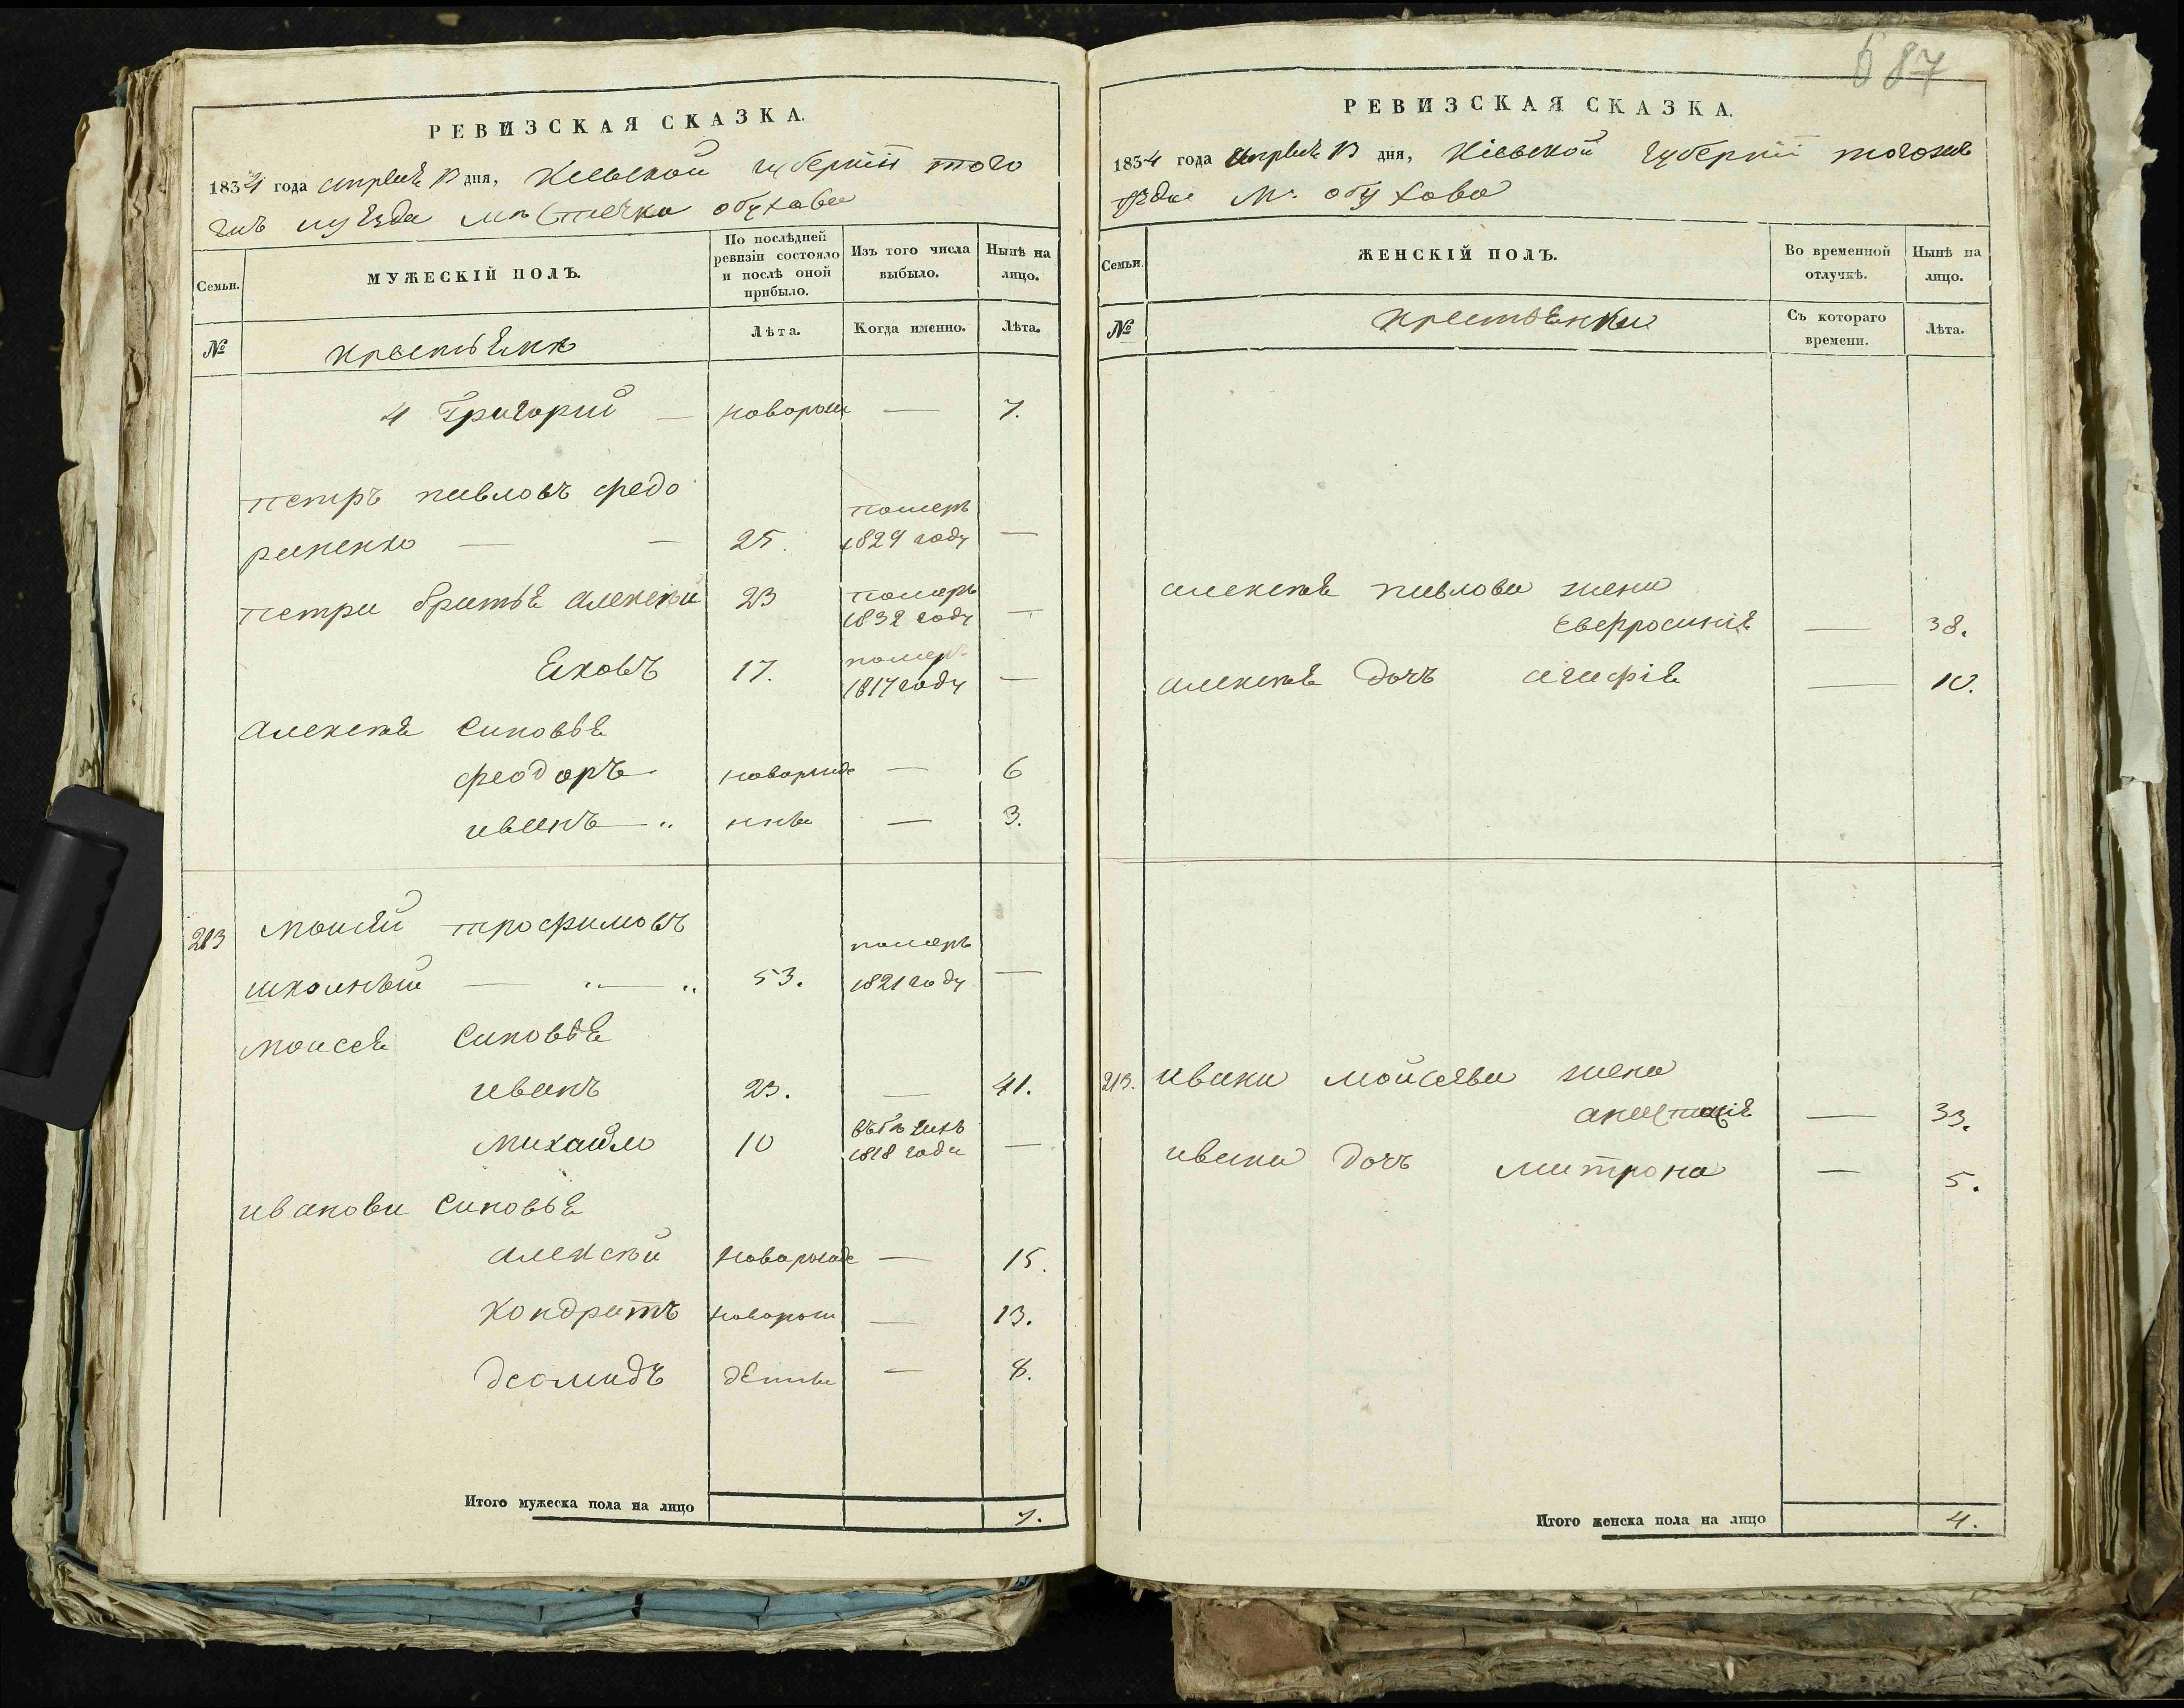 687
РЕВИЗСКАЯ СКАЗКА.
1834 года апреля 13 дня, Киевской губернии того
жъ уезда местечка обухова
Семьи.
МУЖЕСКІЙ ПОЛЪ.
По послѣдней ревизіи состояло и послѣ оной прибыло.
Изъ того числа выбыло.
Нынѣ на лицо.
№
Лѣта.
Когда именно.
Лѣта.
4 Григорий — новорож — 7.
петръ павловъ федо
померъ
риненко — — 25. 1829 году —
петра братья алексѣй 23 померъ
1832 году —
Яковъ 17. померъ
1817 году —
алексея синовья
феодоръ новорожде — 6
иванъ — — 3.
213 моисей трофимовъ
померъ
школный — 53. 1821 году —
моисея синовья
иванъ 23. — 41.
михайло 10
1818 года —
иванови синовья
алексѣй новорожде — 15.
кондратъ новорож — 13.
деомидъ — 8.
Итого мужеска пола на лицо 7.
РЕВИЗСКАЯ СКАЗКА.
1834 года апреля 13 дня, Кіевской губерніи тогожъ
уезда м. обухова
Семьи.
ЖЕНСКІЙ ПОЛЪ.
Во временной отлучкѣ.
Нынѣ на лицо.
№
Съ котораго времени.
Лѣта.
крестьянки
алексея павлова жена
Евфросинія — 38.
алексея дочъ агафія — 10.
213. ивана мойсѣева жена
анастасія — 33.
ивана дочъ матрона — 5.
Итого женска пола на лицо 4.